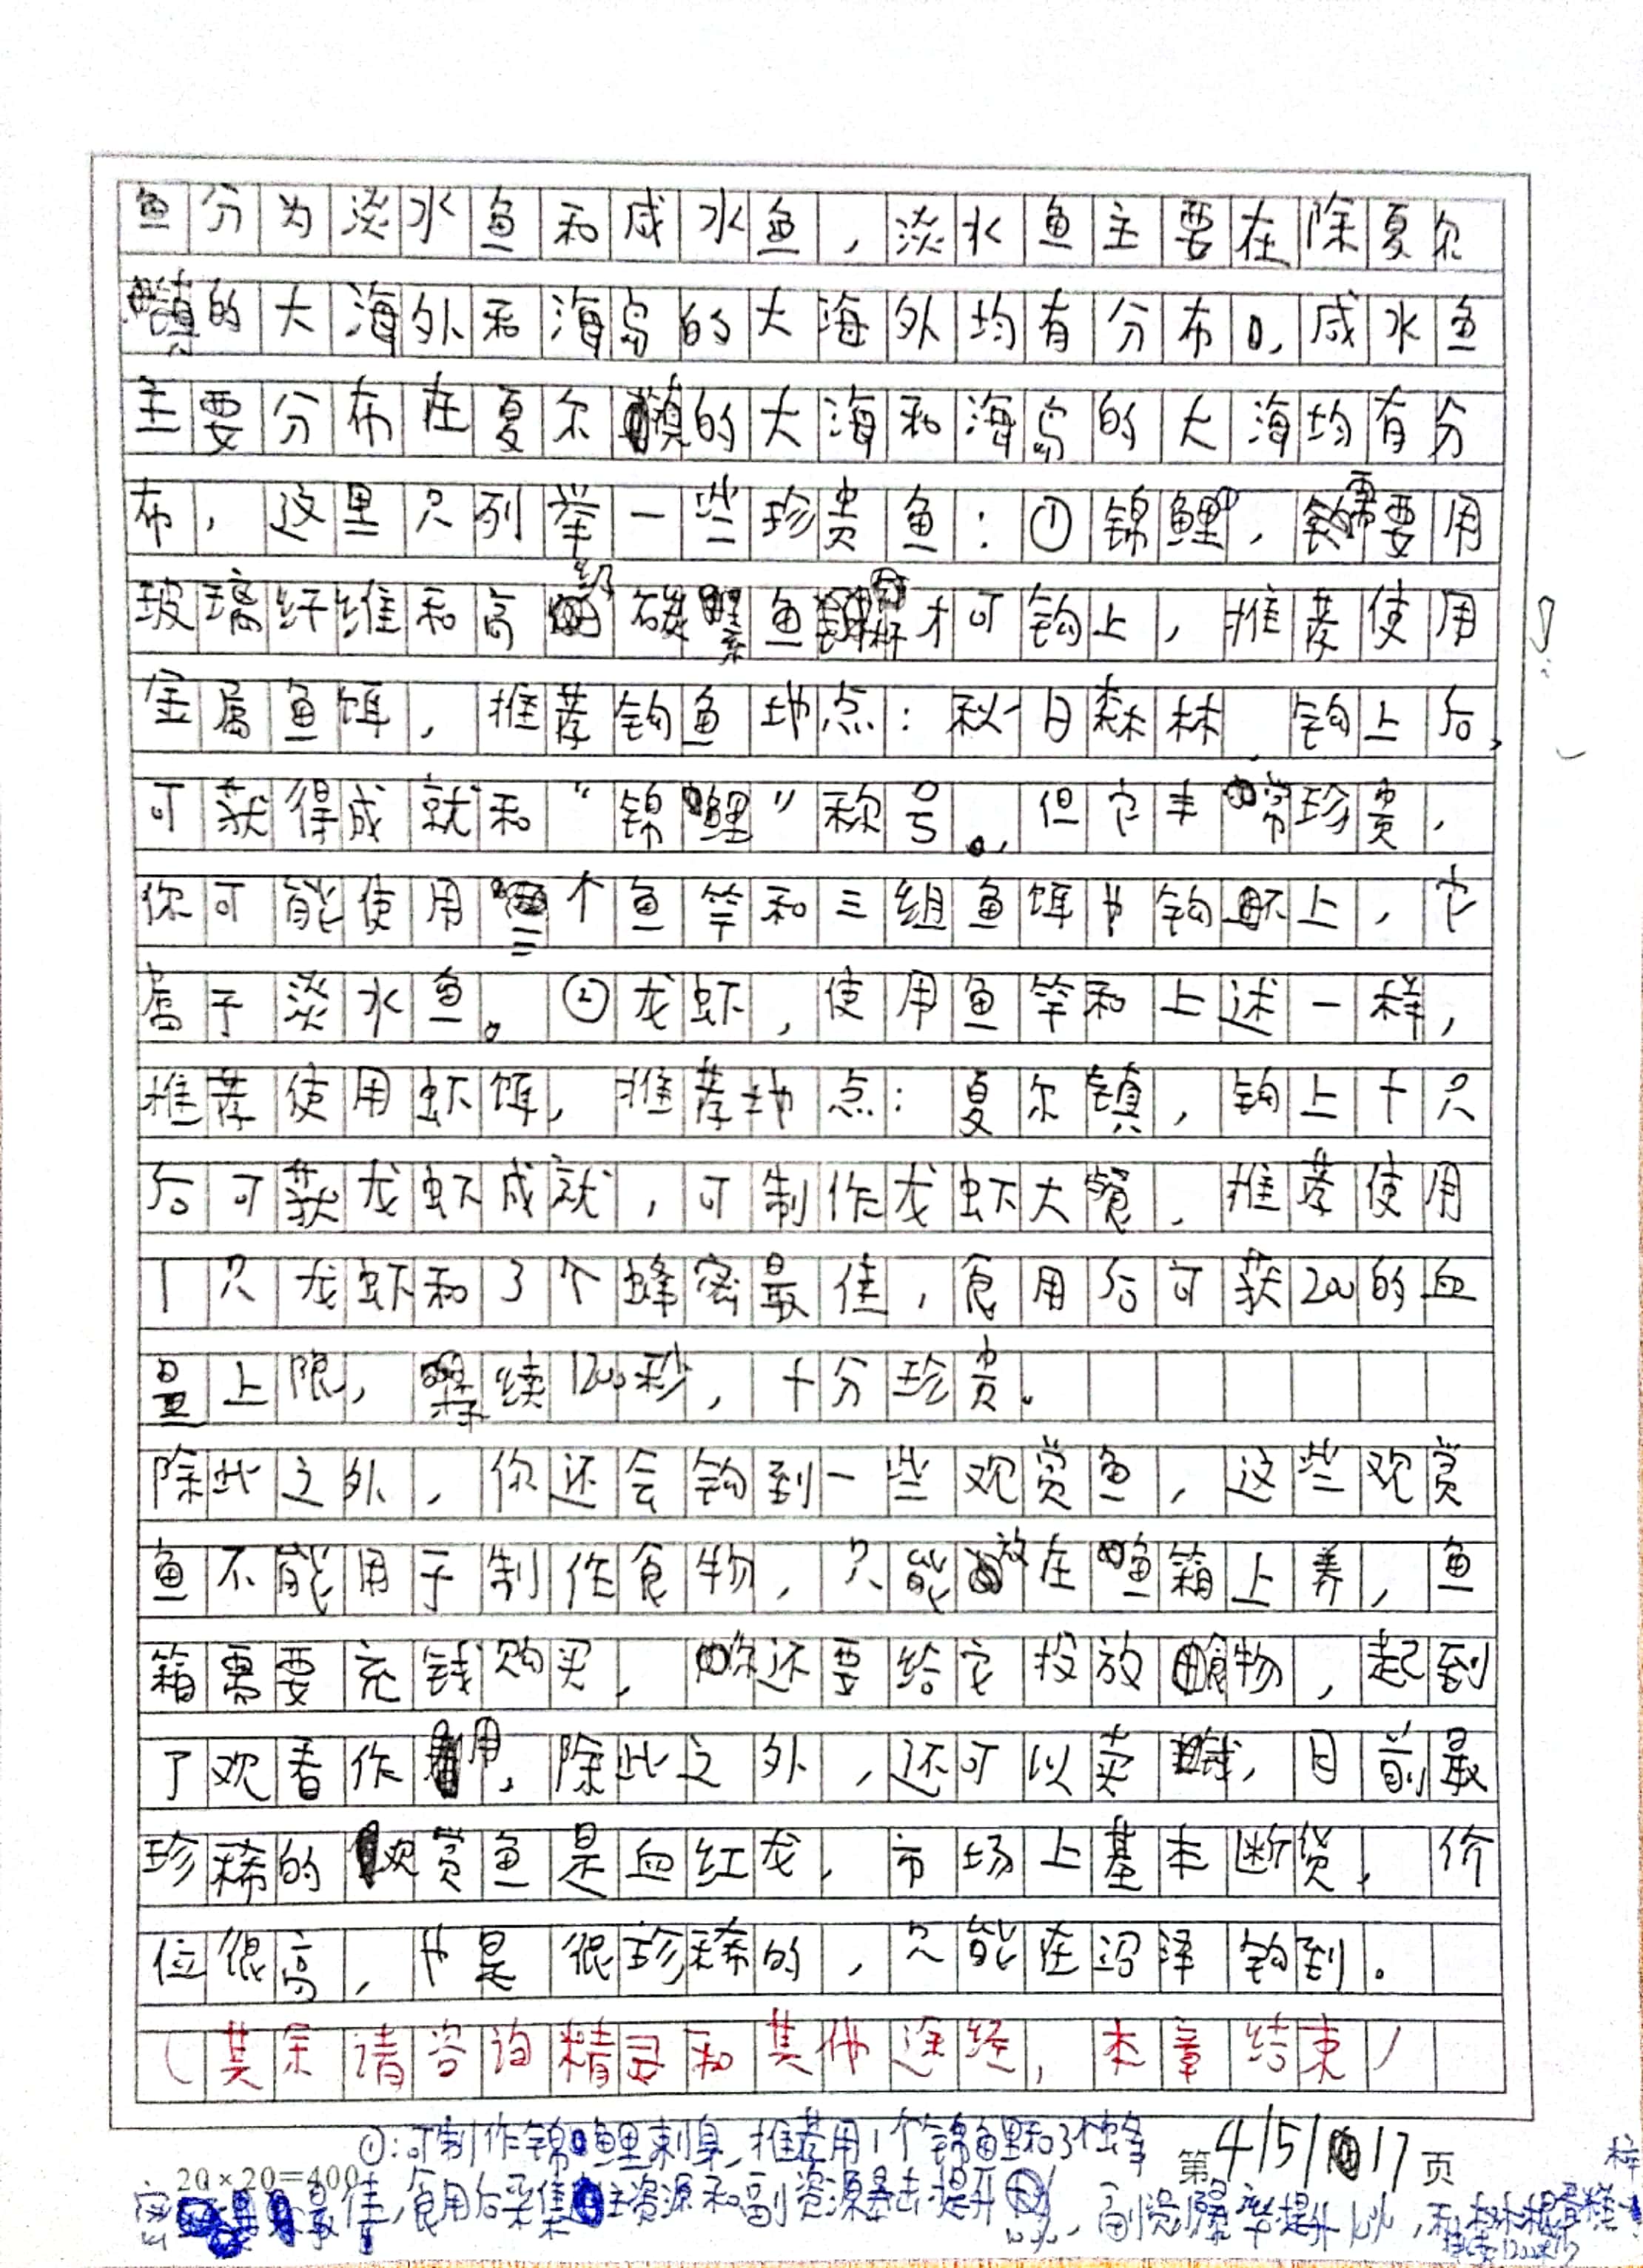 鱼分为淡水鱼和咸水鱼，淡水鱼主要在除夏尔
镇的大海外和海岛的大海外均有分布。咸水鱼
主要分布在夏尔镇的大海和海岛的大海均有分
布，这里只列举一些珍贵鱼：①锦鲤，需要用
玻璃纤维和高级碳素鱼杆才可钩上，推荐使用
金属鱼饵，推荐钩鱼地点：秋日森林，钩上后，
可获得成就和“锦鲤”称号。但它非常珍贵，
你可能使用三个鱼竿和三组鱼饵也钩不上，它
属于淡水鱼。②龙虾，使用鱼竿和上述一样，
推荐使用虾饵，推荐地点：夏尔镇，钩上十只
后可获龙虾成就，可制作龙虾大餐，推荐使用
1只龙虾和3个蜂密最佳，食用后可获200的血
量上限，持续1200秒，十分珍贵。
除此之外，你还会钩到一些观赏鱼，这些观赏
鱼不能用于制作食物，只能放在鱼箱上养，鱼
箱需要充钱购买，你还要给它投放食物，起到
了观看作用，除此之外，还可以卖钱，目前最
珍稀的观赏鱼是血红龙，市场上基本断货，价
位很高，也是很珍稀的，只能在沼泽钩到。
（其余请咨询精灵和其他途经，本章结束）
①：可制作锦鲤刺身，推荐用1个锦鲤和3个蜂
密最佳，食用后采集主资源和副资源暴击提升
20×20=400
第4/5/17页